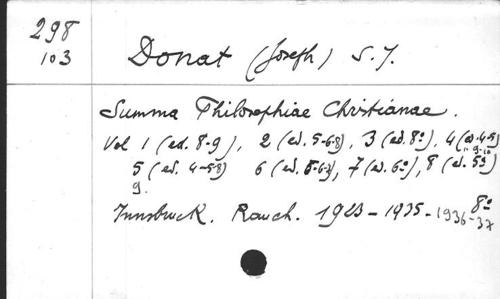 298
103
Donat (Joseph) S. J.
Summa Philosophiae Christianae.
Vol 1 (ed. 8-9), 2 (ed. 5-6-8), 3 (ed. 8ª), 4 (ed. 4-5)
" 9-10
5 (ed. 4-5-8) 6 (ed. 5-6-7), 7 (ed. 6ª), 8 (ed. 5ª)
9.
Innsbruck. Rauch. 1923-1935-1936-37
8º